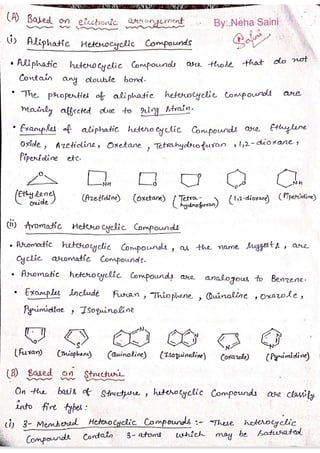 (A) Based on electronic arrangement :-
By: Neha Saini
Saini
(i) Aliphatic Heterocyclic Compounds
• Aliphatic heterocyclic Compounds are those that do not
Contain any double bond.
• The properties of aliphatic heterocyclic Compounds are
mainly affected due to Ring Strain.
• Examples of aliphatic heterocyclic Compounds are Ethylene
Oxide, Azetidine, Oxetane, Tetrahydrofuran, 1,2-dioxane,
Piperidine etc.
O NH O O O O NH
(Ethylene oxide) (Azetidine) (Oxetane) (Tetra-hydrofuran) (1,2-dioxane) (Piperidine)
(ii) Aromatic Heterocyclic Compounds
• Aromatic heterocyclic Compounds, as the name suggests, are
Cyclic aromatic Compounds.
• Aromatic heterocyclic Compounds are analogous to Benzene.
• Examples Include Furan, Thiophene, Quinoline, Oxazole,
Pyrimidine, Isoquinoline
O S N N O N N N
(Furan) (Thiophene) (Quinoline) (Isoquinoline) (Oxazole) (Pyrimidine)
(B) Based on Structure
On the basis of Structure, heterocyclic Compounds are classify
into five types :
(i) 3-Membered Heterocyclic Compounds :- These heterocyclic
Compounds Contain 3-atoms which may be Saturated